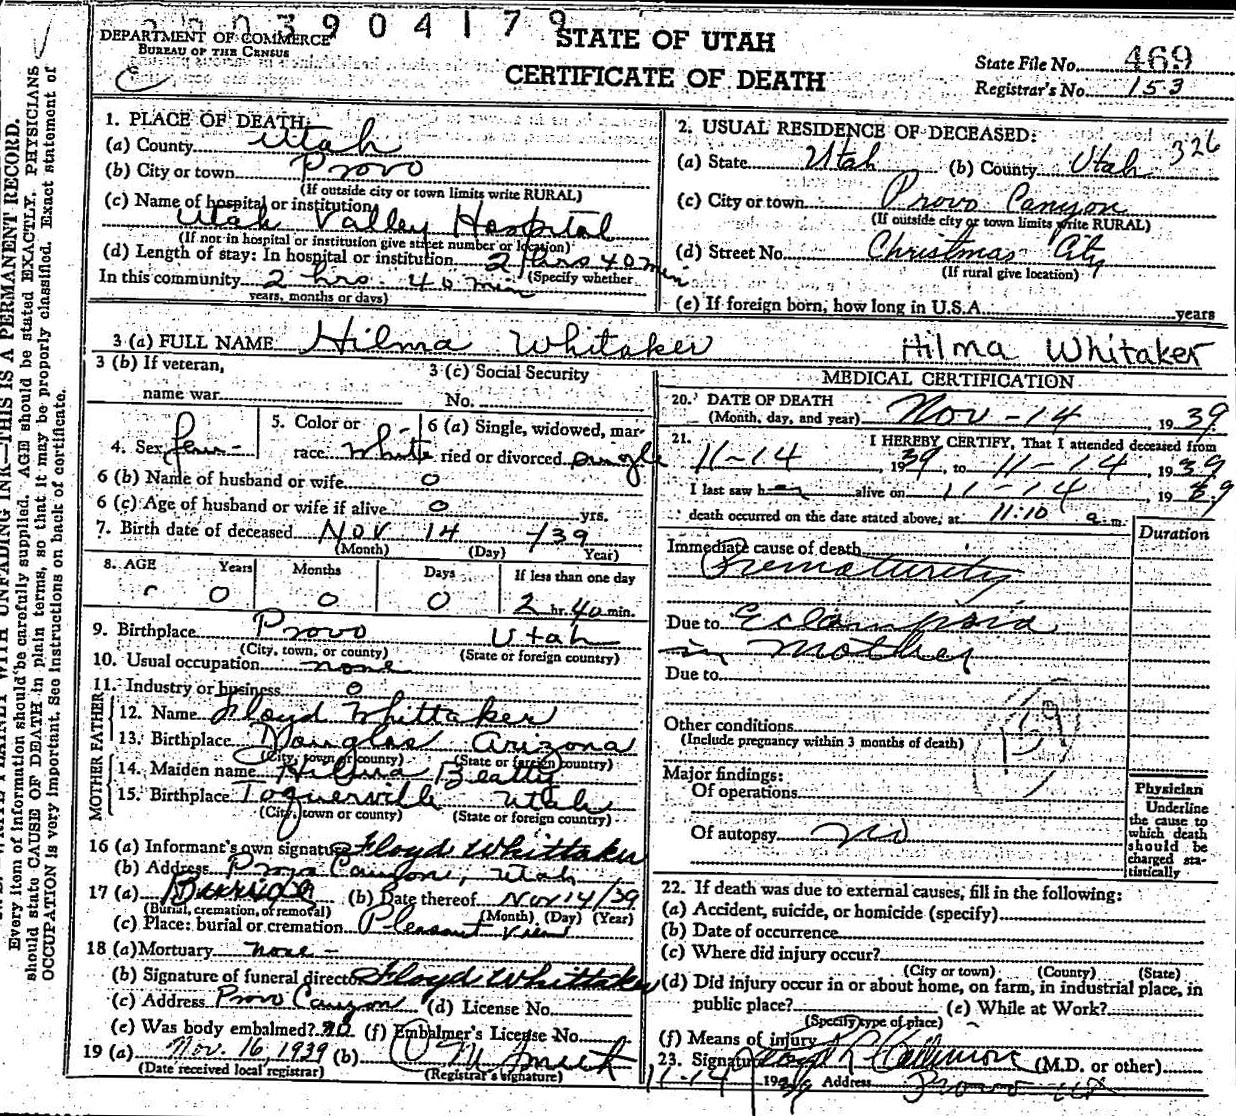 2 0 0 3 9 0 4 1 7 9
DEPARTMENT OF COMMERCE
BUREAU OF THE CENSUS
STATE OF UTAH
CERTIFICATE OF DEATH
State File No. 469
Registrar's No. 153
Every item of information should be carefully supplied. AGE should be stated EXACTLY. PHYSICIANS
should state CAUSE OF DEATH in plain terms, so that it may be properly classified. Exact statement of
OCCUPATION is very important. See instructions on back of certificate.
WITH UNFADING INK—THIS IS A PERMANENT RECORD.
1. PLACE OF DEATH:
(a) County Utah
(b) City or town Provo
(If outside city or town limits write RURAL)
(c) Name of hospital or institution:
Utah Valley Hospital
(If not in hospital or institution give street number or location)
(d) Length of stay: In hospital or institution 2 hrs 40 min
(Specify whether
In this community 2 hrs. 40 min
years, months or days)
2. USUAL RESIDENCE OF DECEASED: 326
(a) State Utah (b) County Utah
(c) City or town Provo Canyon
(If outside city or town limits write RURAL)
(d) Street No. Christmas City
(If rural give location)
(e) If foreign born, how long in U.S.A. years
3 (a) FULL NAME Hilma Whitaker Hilma Whitaker
3 (b) If veteran,
name war
3 (c) Social Security
No.
4. Sex fem-
5. Color or
race White
6 (a) Single, widowed, mar-
ried or divorced single
6 (b) Name of husband or wife 0
6 (c) Age of husband or wife if alive 0 yrs.
7. Birth date of deceased Nov 14 /39
(Month) (Day) Year)
8. AGE Years Months Days If less than one day
0 0 0 2 hr. 40 min.
9. Birthplace Provo Utah
(City, town, or county) (State or foreign country)
10. Usual occupation none
11. Industry or business 0
FATHER
12. Name Floyd Whittaker
13. Birthplace Douglas Arizona
(City, town or county) (State or foreign country)
MOTHER
14. Maiden name Hilma Beatty
15. Birthplace Toquerville Utah
(City, town or county) (State or foreign country)
16 (a) Informant's own signature Floyd Whittaker
(b) Address Provo Canyon, Utah
17 (a) (b) Date thereof Nov 14/39
(Burial, cremation, or removal) (Month) (Day) (Year)
(c) Place: burial or cremation Pleasant View
18 (a) Mortuary none -
(b) Signature of funeral director Floyd Whittaker
(c) Address Provo Canyon (d) License No.
(e) Was body embalmed? no (f) Embalmer's License No.
19 (a) Nov. 16, 1939 (b)
(Date received local registrar) (Registrar's signature)
MEDICAL CERTIFICATION
20. DATE OF DEATH
(Month, day, and year) Nov - 14, 1939
21. I HEREBY CERTIFY, That I attended deceased from
11-14, 1939, to 11-14, 1939
I last saw her alive on 11-14, 1939
death occurred on the date stated above, at 11:10 a.m.
Duration
Immediate cause of death
Prematurity
Due to Eclampsia
in Mother
Due to
Other conditions
(Include pregnancy within 3 months of death)
159
Major findings:
Of operations
Of autopsy no
Physician
Underline
the cause to
which death
should be
charged sta-
tistically
22. If death was due to external causes, fill in the following:
(a) Accident, suicide, or homicide (specify)
(b) Date of occurrence
(c) Where did injury occur?
(City or town) (County) (State)
(d) Did injury occur in or about home, on farm, in industrial place, in
public place? (e) While at Work?
(Specify type of place)
(f) Means of injury
23. Signature (M.D. or other)
11-14 1939 Address Provo Ut